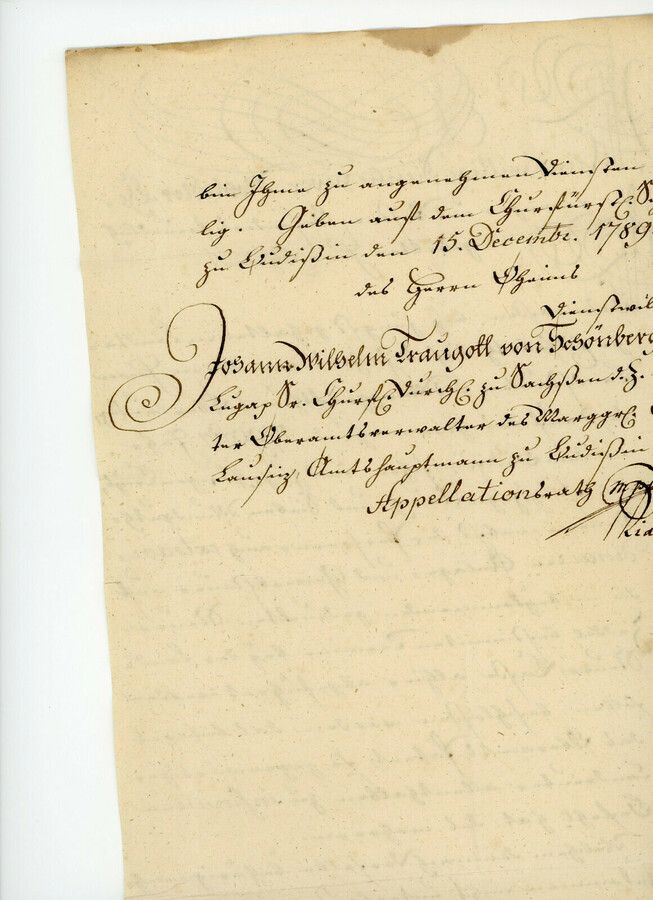 bin Ihme zu angenehmen Diensten
lig. Geben auf dem Churfürstl. S
zu Budißin den 15. Decembr. 1789
des Herrn Oheims
Dienstwil
Johann Wilhelm Traugott von Schönberg
Sr. Churfl. Durchl. zu Sachßen d. Z.
ter Oberamtsverwalter des Marggr.
Lausiz, Amtshauptmann zu Budißin
Appellationsrath mp